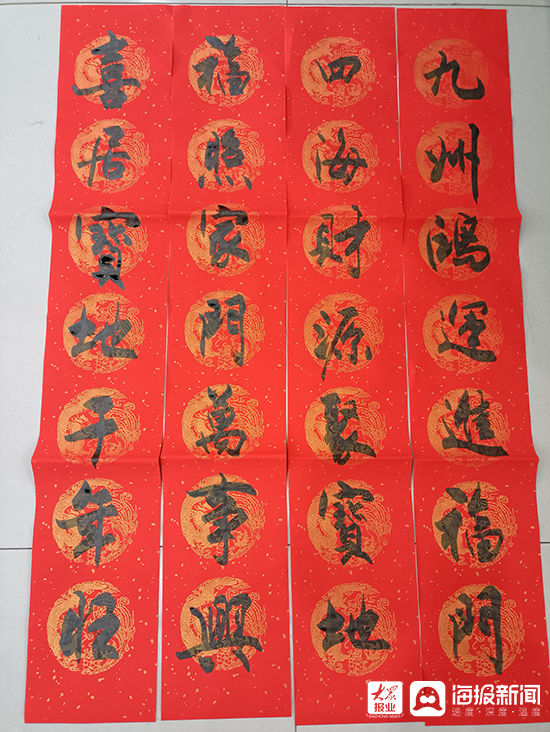 九州鴻運進福門
四海財源聚寶地
福照家門萬事興
喜居寶地千年旺
大众
报业
DAZHONG NEWS
海报新闻
速度·深度·温度